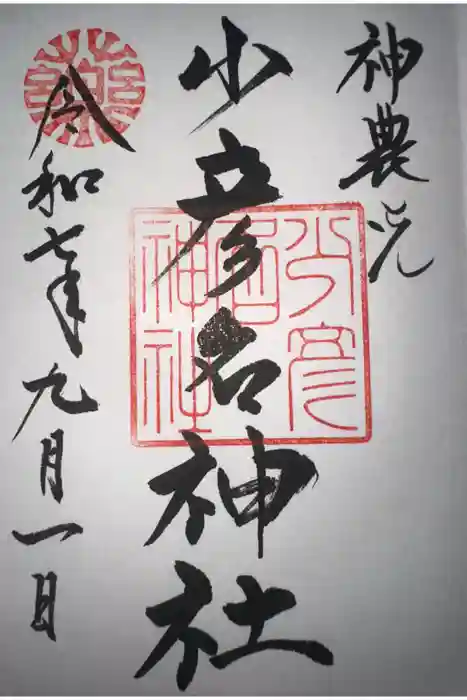 神農さん
少彦名神社
少彦名神社
令和七年九月一日